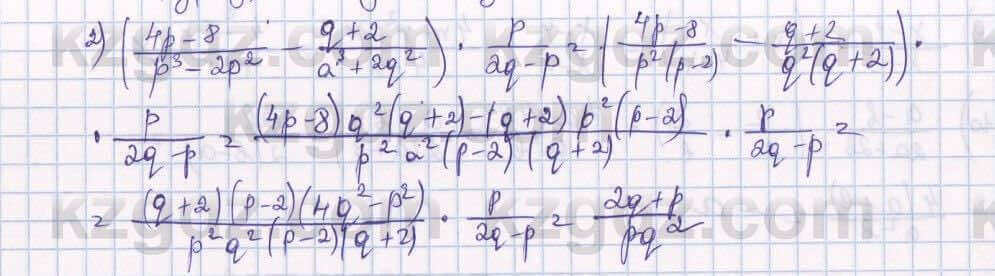 2) ((4p-8)/(p³-2p²) - (q+2)/(q³+2q²)) · p/(2q-p) = ((4p-8)/(p²(p-2)) - (q+2)/(q²(q+2))) ·
· p/(2q-p) = ((4p-8) q²(q+2) - (q+2) p²(p-2))/(p² q² (p-2) (q+2)) · p/(2q-p) =
= ((q+2)(p-2)(4q²-p²))/(p² q² (p-2)(q+2)) · p/(2q-p) = (2q+p)/(pq²)